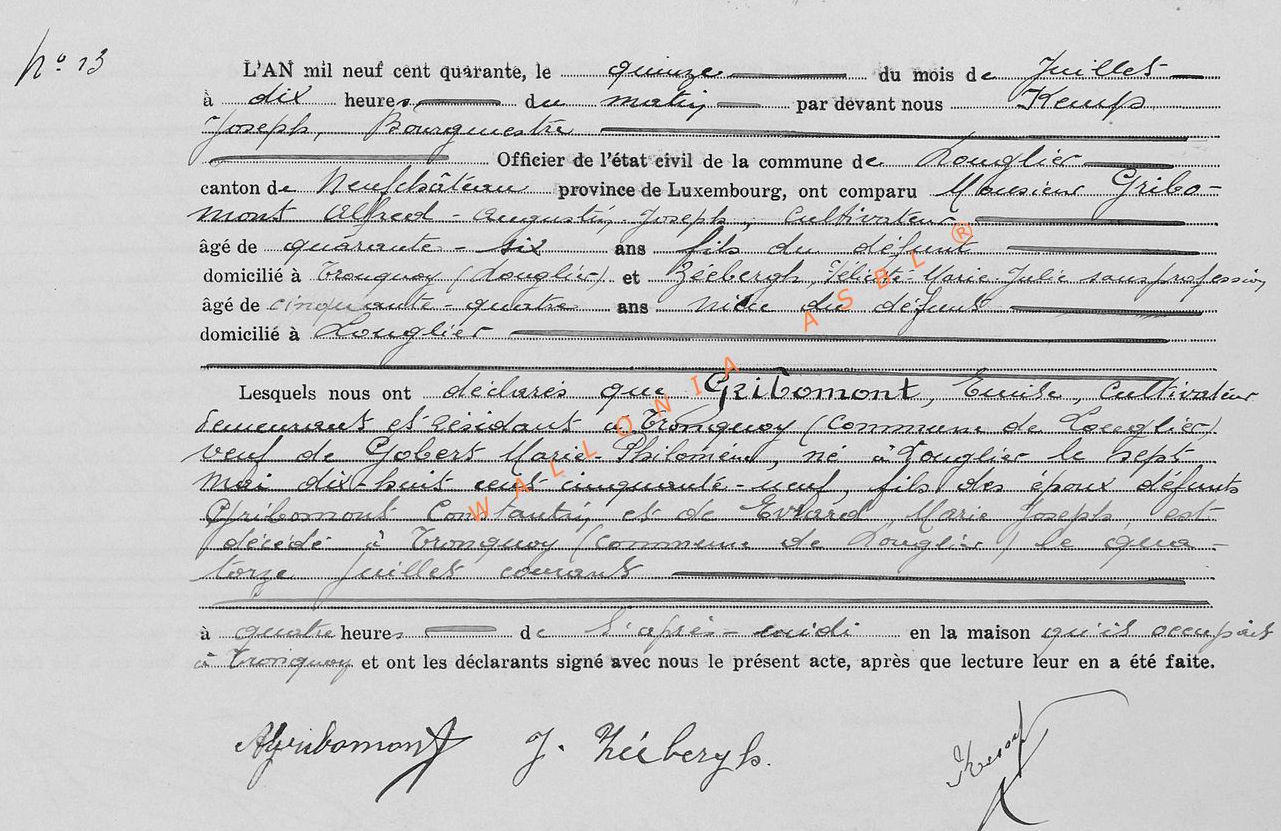 No 13
L'AN mil neuf cent quarante, le quinze du mois de Juillet
à dix heures du matin par devant nous Kemp
Joseph, Bourgmestre
Officier de l'état civil de la commune de Longlier
canton de Neufchâteau province de Luxembourg, ont comparu Monsieur Gribo-
mont Alfred - Augustin, Joseph, Cultivateur
âgé de quarante - six ans fils du défunt
domicilié à Tronquoy (Longlier) et Marie Julie sans profession
âgé de cinquante - quatre ans nièce du défunt
domicilié à Longlier
Lesquels nous ont déclarés que Gribomont, Emile, Cultivateur
demeurant et résidant à Tronquoy (Commune de Longlier)
veuf de Gobert Marie-Philomène, né à Longlier le sept
mai dix-huit cent cinquante-neuf, fils des époux défunts
Gribomont Constantin et de Evrard Marie Joseph est
décédé à Tronquoy (Commune de Longlier) le qua-
torze Juillet courant
à quatre heures de l'après-midi en la maison qu'il occupait
à Tronquoy et ont les déclarants signé avec nous le présent acte, après que lecture leur en a été faite.
AGribomont J.
WALLONIA ASBL ®